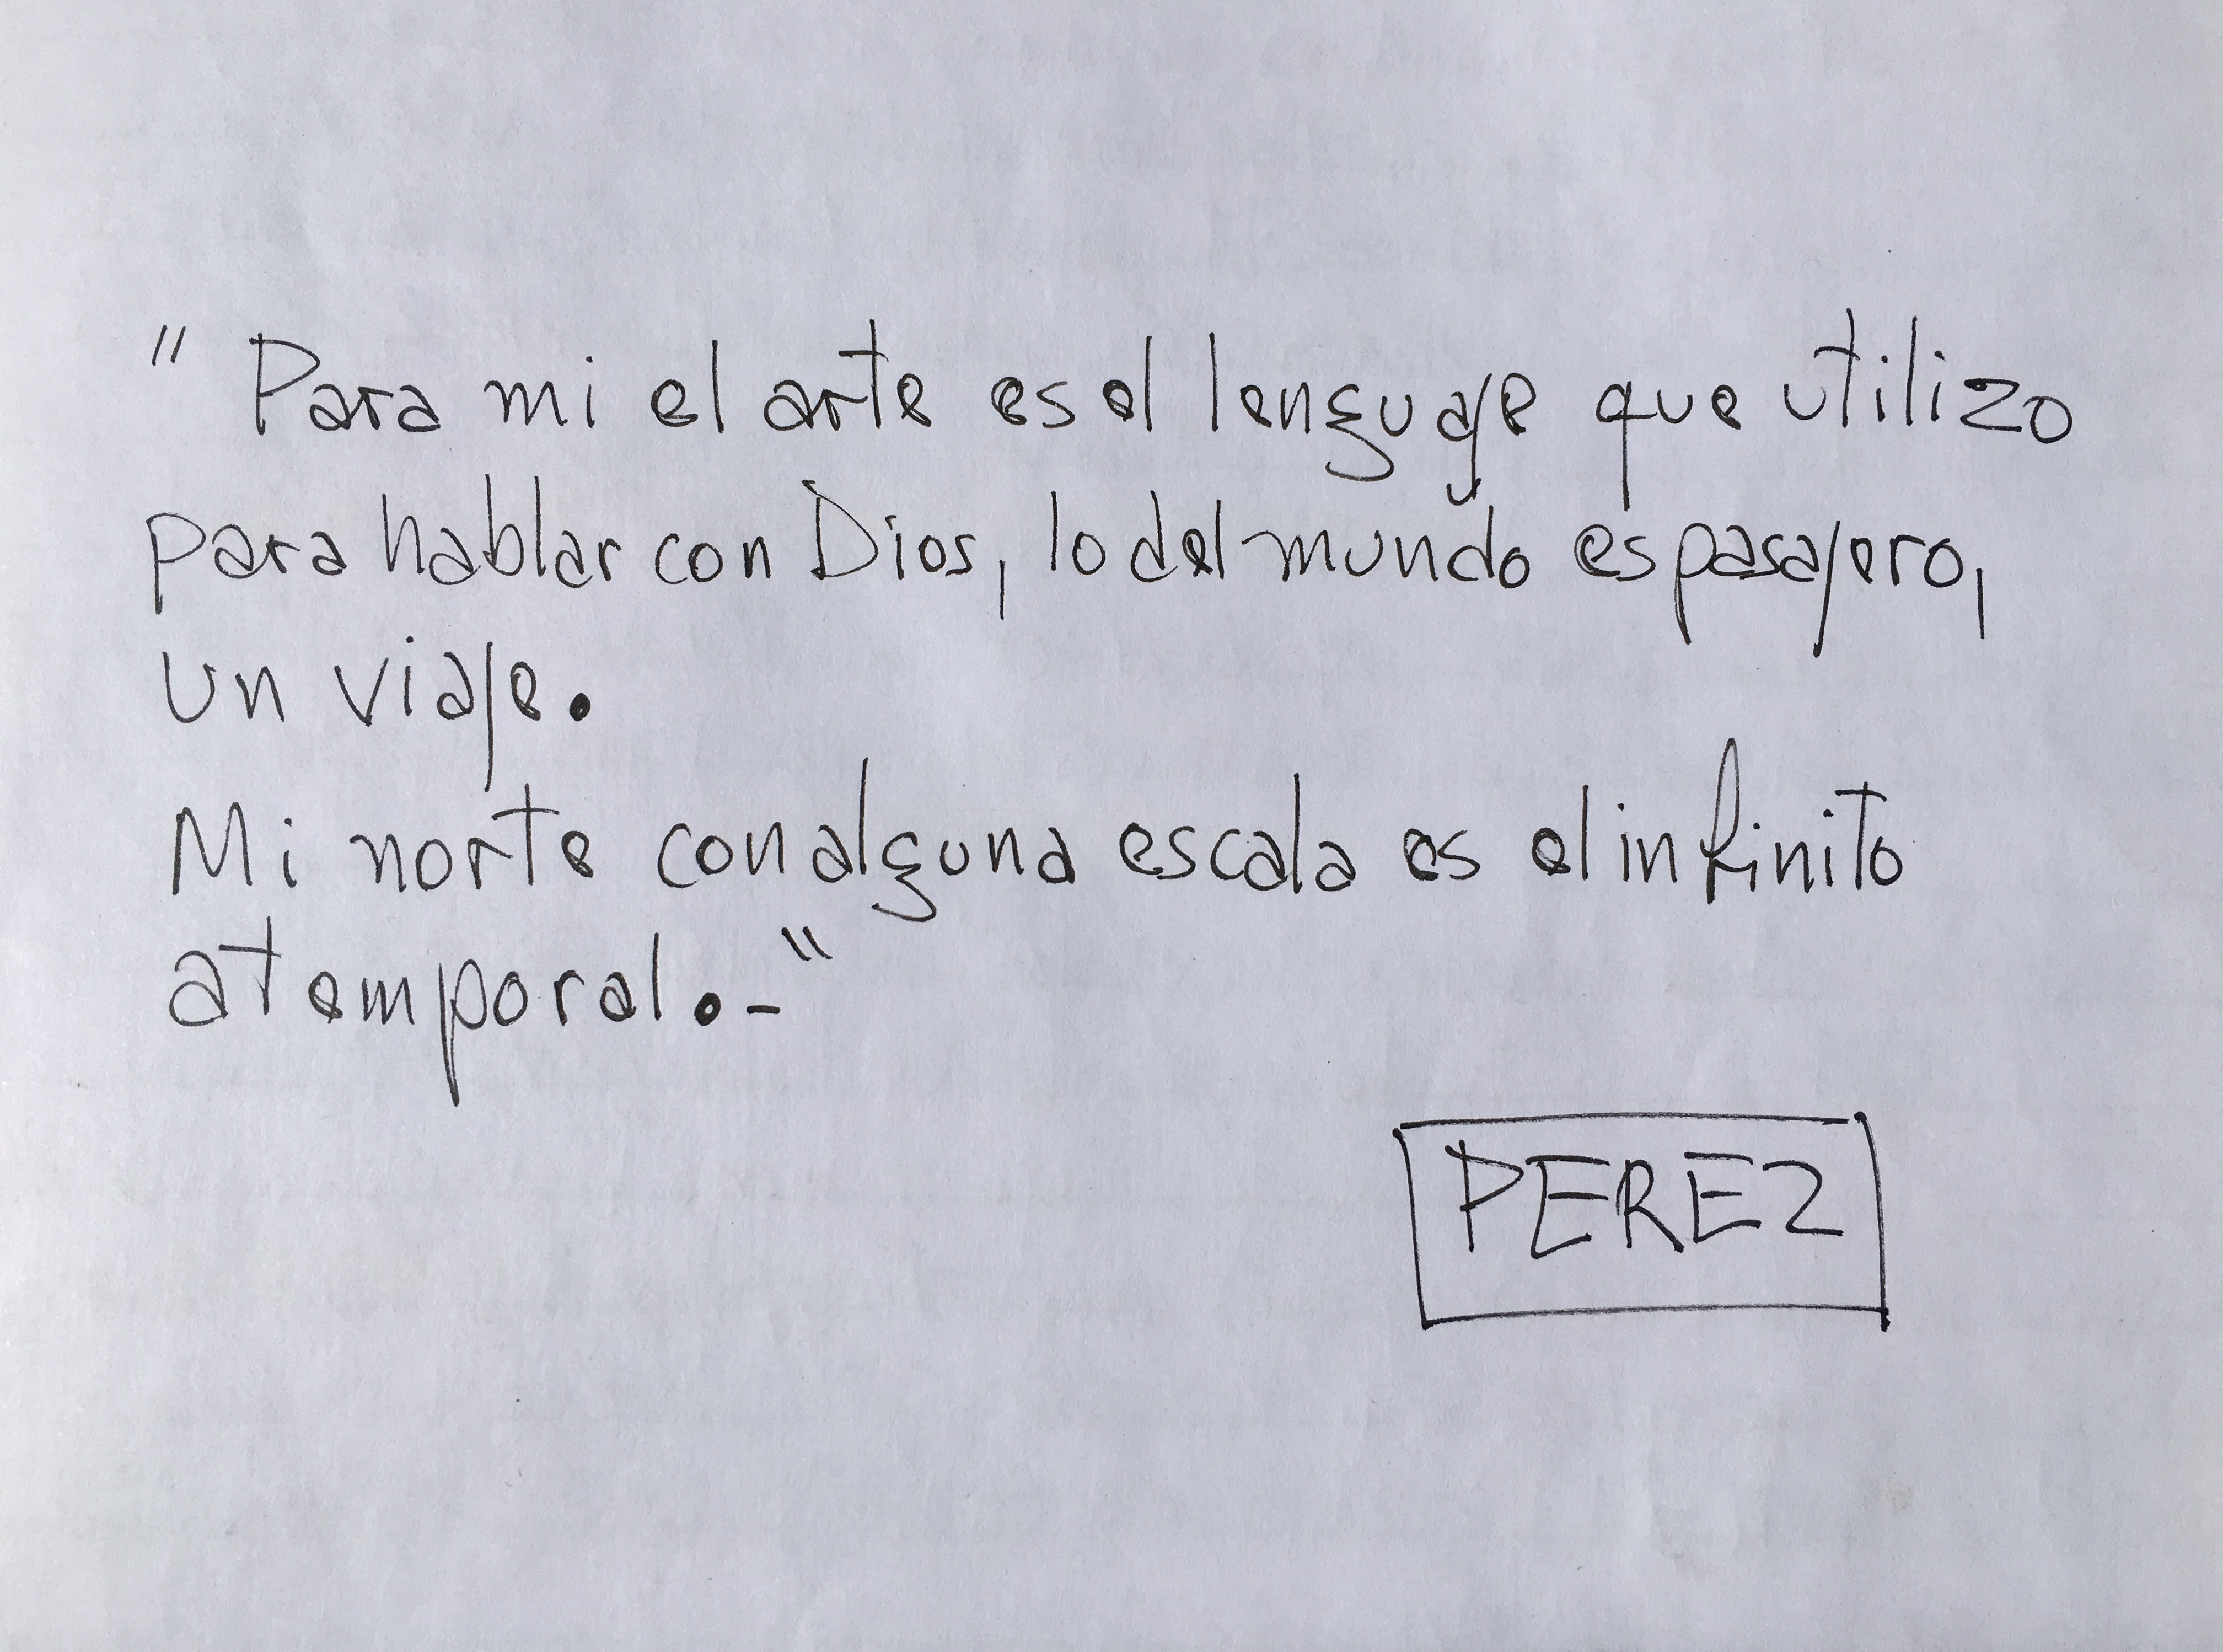 " Para mi el arte es el lenguaje que utilizo
para hablar con Dios, lo del mundo es pasajero,
un viaje.
Mi norte con alguna escala es el infinito
atemporal.-"
PEREZ